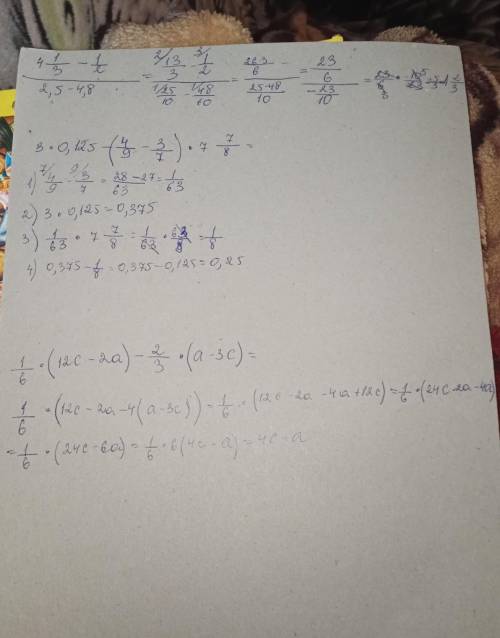 (4 1/3 - 1/2) / (2,5 - 4,8) = (²⁾13/3 - ³⁾1/2) / (¹⁾25/10 - ¹⁾48/10) = ((26-3)/6) / ((25-48)/10) = (23/6) / (-23/10) = 23/6
3 * 0,125 - (4/9 - 3/7) * 7 7/8 =
1) ⁷⁾4/9 - ⁹⁾3/7 = (28-27)/63 = 1/63
2) 3 * 0,125 = 0,375
3) 1/63 * 7 7/8 = 1/63 * 63/8 = 1/8
4) 0,375 - 1/8 = 0,375 - 0,125 = 0,25
1/6 * (12c - 2a) - 2/3 * (a - 3c) =
1/6 * (12c - 2a - 4(a - 3c)) = 1/6 * (12c - 2a - 4a + 12c) = 1/6 * (24c - 2a - 4a)
= 1/6 * (24c - 6a) = 1/6 * 6(4c - a) = 4c - a